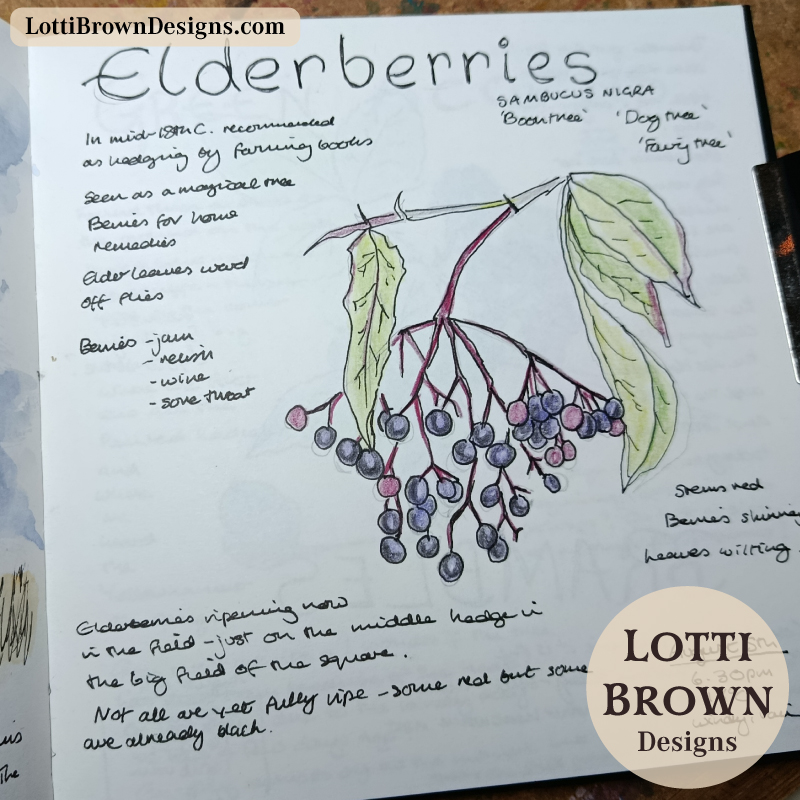 LottiBrownDesigns.com
Elderberries
SAMBUCUS NIGRA
'Boontree' 'Dog tree'
'Fairy tree'
In mid-18th C. recommended
as hedging by farming books
Seen as a magical tree
Berries for home
remedies
Elder leaves ward
off flies
Berries - jam
- relish
- wine
- sore throat
Stems red
Berries shining
Leaves wilting
Elderberries ripening now
in the field - just on the middle hedge in
the big field of the square.
Not all are yet fully ripe - some red but some
are already black.
6.30pm
LOTTI
BROWN
Designs
The